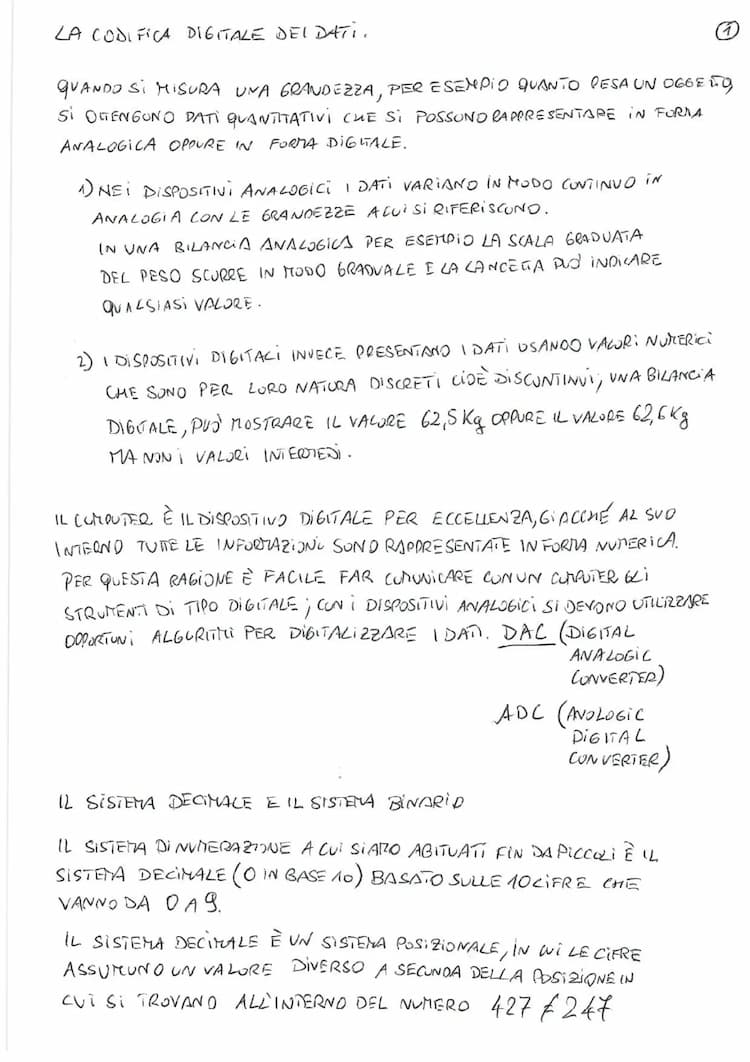 LA CODIFICA DIGITALE DEI DATI.
1
QUANDO SI MISURA UNA GRANDEZZA, PER ESEMPIO QUANTO PESA UN OGGETTO,
SI OTTENGONO DATI QUANTITATIVI CHE SI POSSONO RAPPRESENTARE IN FORMA
ANALOGICA OPPURE IN FORMA DIGITALE.
1) NEI DISPOSITIVI ANALOGICI I DATI VARIANO IN MODO CONTINUO IN
ANALOGIA CON LE GRANDEZZE A CUI SI RIFERISCONO.
IN UNA BILANCIA ANALOGICA PER ESEMPIO LA SCALA GRADUATA
DEL PESO SCORRE IN MODO GRADUALE E LA LANCETTA PUÒ INDICARE
QUALSIASI VALORE.
2) I DISPOSITIVI DIGITALI INVECE PRESENTANO I DATI USANDO VALORI NUMERICI
CHE SONO PER LORO NATURA DISCRETI CIOÈ DISCONTINUI, UNA BILANCIA
DIGITALE, PUÒ MOSTRARE IL VALORE 62,5 Kg OPPURE IL VALORE 62,6 Kg
MA NON I VALORI INTERMEDI.
IL COMPUTER È IL DISPOSITIVO DIGITALE PER ECCELLENZA, GIACCHÉ AL SUO
INTERNO TUTTE LE INFORMAZIONI SONO RAPPRESENTATE IN FORMA NUMERICA.
PER QUESTA RAGIONE È FACILE FAR COMUNICARE CON UN COMPUTER GLI
STRUMENTI DI TIPO DIGITALE; CON I DISPOSITIVI ANALOGICI SI DEVONO UTILIZZARE
OPPORTUNI ALGORITMI PER DIGITALIZZARE I DATI. DAC (DIGITAL
ANALOGIC
CONVERTER)
ADC (ANOLOGIC
DIGITAL
CONVERTER)
IL SISTEMA DECIMALE E IL SISTEMA BINARIO
IL SISTEMA DI NUMERAZIONE A CUI SIAMO ABITUATI FIN DA PICCOLI È IL
SISTEMA DECIMALE (O IN BASE 10) BASATO SULLE 10 CIFRE CHE
VANNO DA 0 A 9.
IL SISTEMA DECIMALE È UN SISTEMA POSIZIONALE, IN CUI LE CIFRE
ASSUMONO UN VALORE DIVERSO A SECONDA DELLA POSIZIONE IN
CUI SI TROVANO ALL'INTERNO DEL NUMERO 427 ≠ 247